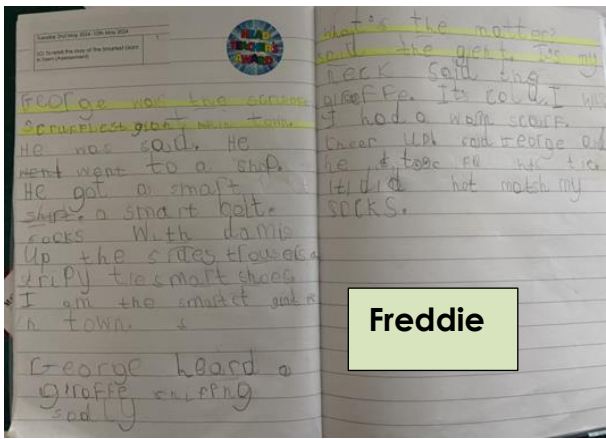 Tuesday 2nd May 2024 -10th May 2024
LO: To retell the story of the Smartest Giant
in Town (Assessment)
HEAD
TEACHER'S
AWARD
George was the
scruffiest giant in town.
He was sad. He
went went to a shop.
He got a smart
shirt. a smart belt.
socks with
Up the sides trousers a
stripy tie smart shoes
I am the smartest giant
in town. s
George heard a
giraffe sniffing
sadly
what's the matter?
said the giant. It's my
neck said the
giraffe. Its cold. I wis
I had a warm scarf.
cheer up! said George and
he tie.
It did not match my
socks.
Freddie